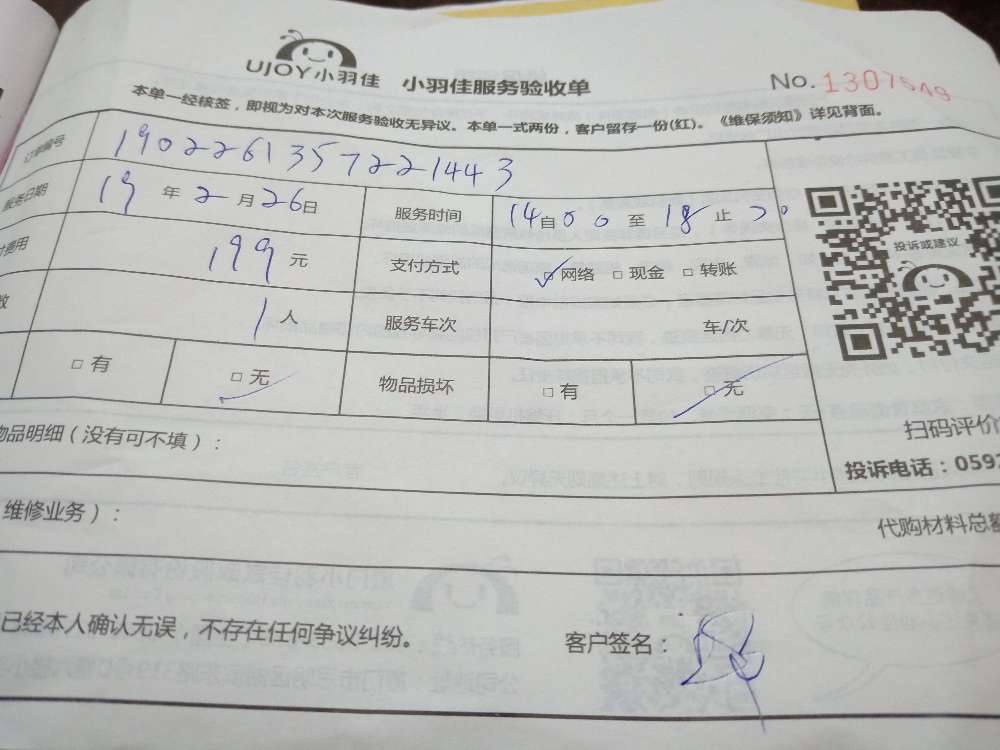 UJOY小羽佳 小羽佳服务验收单 No. 1307549
本单一经核签，即视为对本次服务验收无异议。本单一式两份，客户留存一份(红)。《维保须知》详见背面。
订单编号 1902261357221443
服务日期 19 年 2 月 26 日 服务时间 14 自 00 至 18 止 20
费用 199 元 支付方式 ☑ 网络 □ 现金 □ 转账
数 1 人 服务车次 车/次
□ 有 □ 无 ✓ 物品损坏 □ 有 □ 无 ✓
投诉或建议
物品明细（没有可不填）：
扫码评价
投诉电话：059
维修业务）：
代购材料总额
已经本人确认无误，不存在任何争议纠纷。 客户签名：